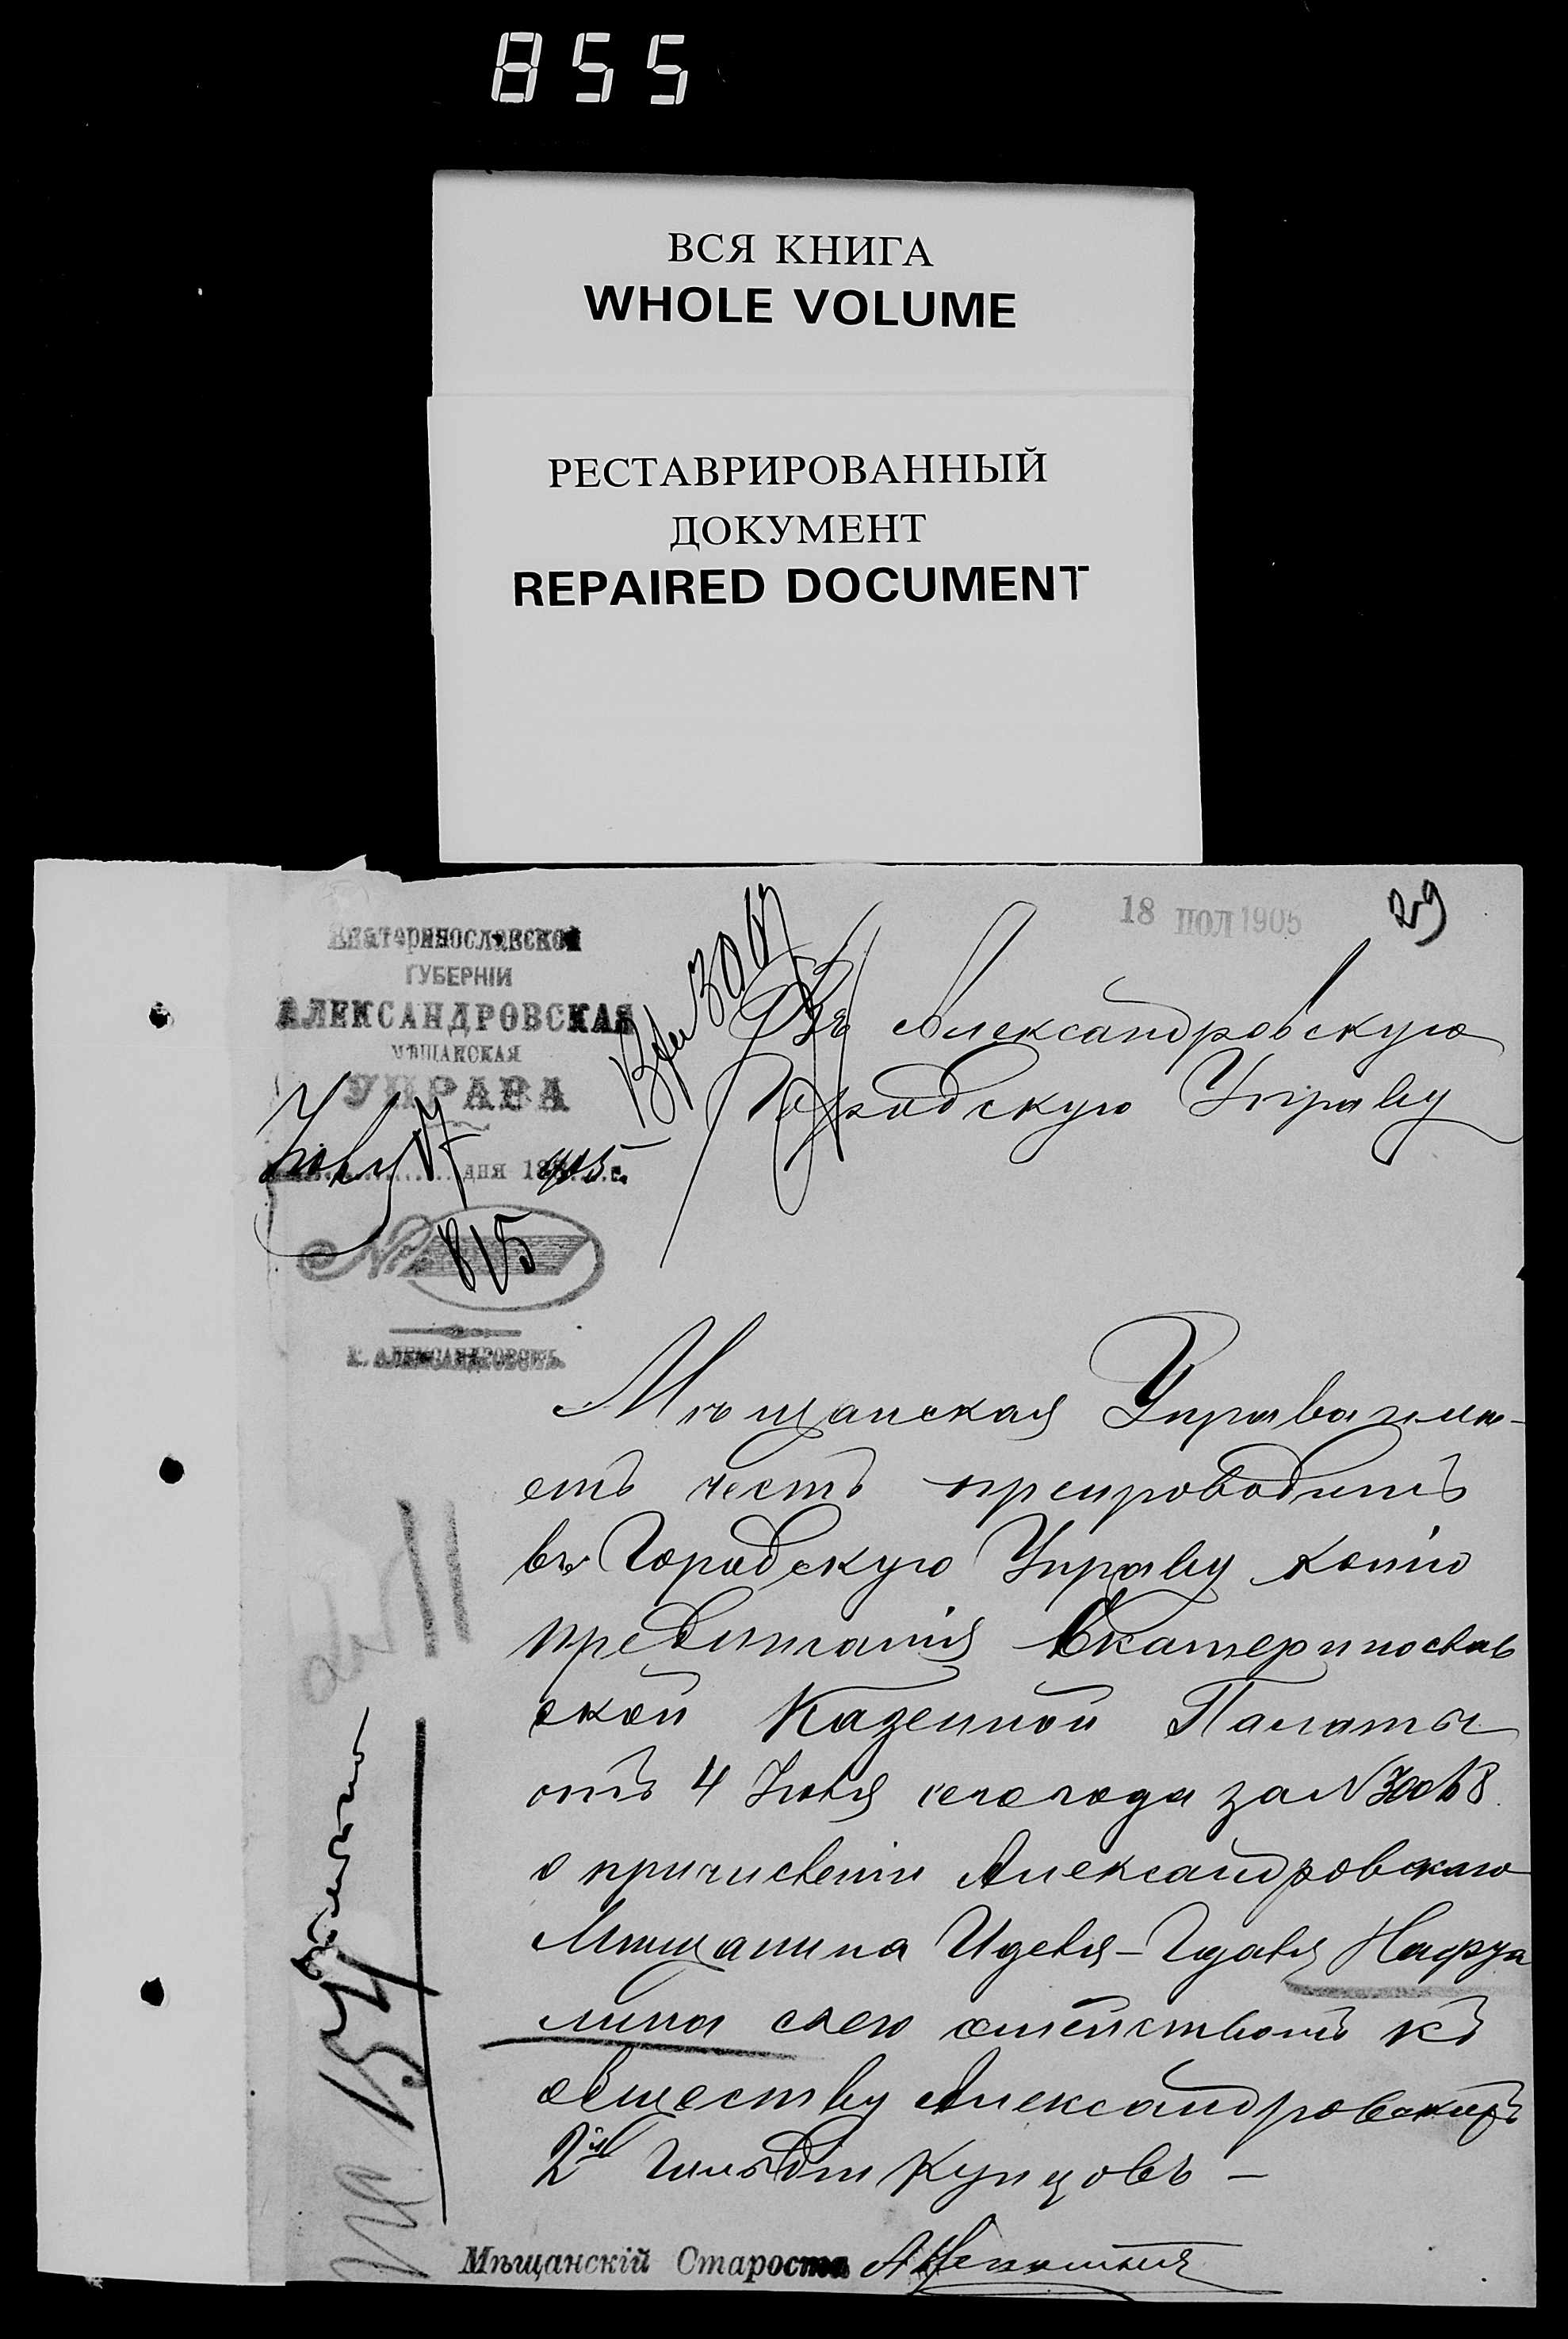 855
ВСЯ КНИГА
WHOLE VOLUME
РЕСТАВРИРОВАННЫЙ
ДОКУМЕНТ
REPAIRED DOCUMENT
18 ІЮЛ 1905
29
Екатеринославской
ГУБЕРНІИ
АЛЕКСАНДРОВСКАЯ
МѢЩАНСКАЯ
УПРАВА
Іюля 17 дня 1905 г.
№ 815
г. АЛЕКСАНДРОВСКЪ.
Въ Александровскую
Городскую Управу
Мѣщанская Управа имѣ-
етъ честь препроводить
въ Городскую Управу копію
предписанія Екатеринослав
ской Казенной Палаты
отъ 4 Іюля сего года за №
о причисленіи Александровскаго
Мѣщанина Иделя-Гдаля
семействомъ къ
обществу Александровскихъ
2й Гильдіи Купцовъ -
Мѣщанскій Староста